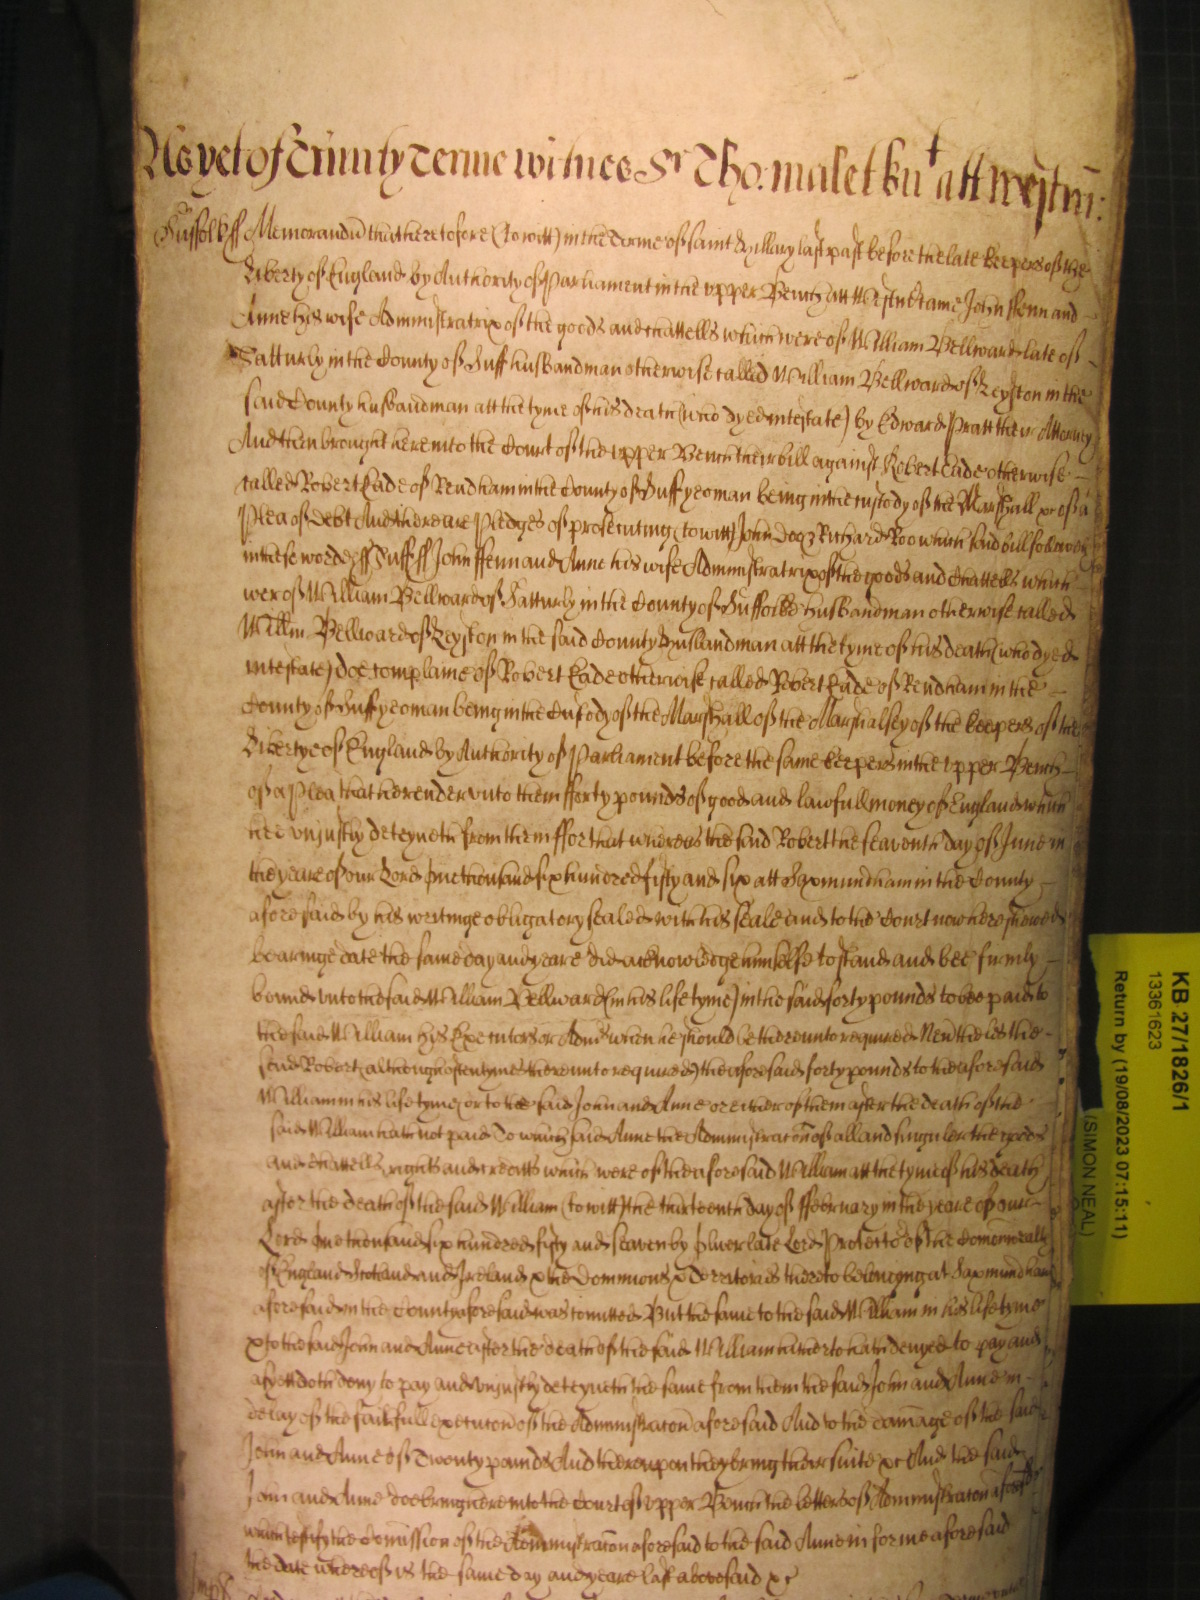 As yet of Trinity Terme witnes Sr Tho: Malet knt att Westmr:
Suffolk ss Memorandu that heretofore (to witt) in the Terme of saint Hillary last past before the late keepers of the
Liberty of England by Authority of Parliament in the vpper Bench att Westmr came John ffenn and
Anne his wife Administratrix of the goods and chattells which were of William Bellward late of
in the County of Suff husbandman otherwise called William Bellward of Leyston in the
said County husbandman att the tyme of his death (who dyed intestate) by Edward Pratt their Attorney
And then brought here into the Court of the vpper Bench their bill against Robert Eade otherwise
called Robert Eade of Rendham in the County of Suff yeoman being in the custody of the Marshall &c of a
Plea of Debt And there are Pledges of prosecuting (to witt) John Doo & Richard Roo which said bill followes
in these words ss Suff ss John ffenn and Anne his wife Administratrix of the goods and Chattells which
were of William Bellward of in the County of Suffolke husbandman otherwise called
Willm Bellward of Leyston in the said County husbandman att the tyme of his death (who dyed
intestate) doe complaine of Robert Eade otherwise called Robert Eade of Rendham in the
County of Suff yeoman being in the Custody of the Marshall of the Marshalsey of the keepers of the
Libertye of England by Authority of Parliament before the same keepers in the vpper Bench
of a Plea that he render vnto them fforty pounds of good and lawfull money of England which
hee vnjustly deteyneth from them ffor that whereas the said Robert the seaventh day of June in
the yeare of our Lord One thousand six hundred fifty and six att Saxmundham in the County
aforesaid by his writinge obligatory sealed with his seale and to the Court now here showed
bearinge date the same day and yeare did acknowledge himselfe to stand and bee firmly
bound vnto the said William Bellward (in his life tyme) in the said forty pounds to bee paid to
the said William his Executors or Adms when he should be thereunto required Nevertheles the
said Robert (although oftentymes thereunto required) the aforesaid forty pounds to the aforesaid
William in his life tyme or to the said John and Anne or either of them after the death of the
said William hath not paid To which said Anne the Administracon of all and singuler the goods
and chattells rights and creditts which were of the aforesaid William att the tyme of his death
after the death of the said William (to witt) the thirteenth day of ffebruary in the yeare of our
Lord One thousand six hundred fifty and seaven by Oliver late Lord Protector of the Comonwealth
of England Scotland and Ireland & the Dominions & Territories thereto belonging at Saxmundham
aforesaid in the County aforesaid was comitted But the same to the said William in his life tyme
& to the said John and Anne after the death of the said William hitherto hath denyed to pay and
as yett doth deny to pay and vnjustly deteyneth the same from them the said John and Anne in
delay of the faithfull execucon of the Administracon aforesaid And to the damage of the said
John and Anne of Twenty pounds And thereupon they bring their suite &c And the said
John and Anne doe bring here into the Court of vpper Bench the letters of Administracon aforesd
which testify the Comission of the Administracon aforesaid to the said Anne in forme aforesaid
the date whereof is the same day and yeare last abovesaid &c
KB 27/1826/1
13361623
Return by (19/08/2023 07:15:11)
(SIMON NEAL)